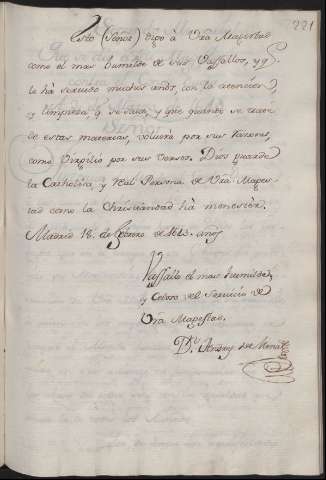 221
Esto (Señor) digo à Vrã Magestad
como el mas humilde de sus Vasallos, y q͂
le ha servido muchos años, con la atencion,
y limpieza q͂ se save, y que quando se trate
de estas materias, volverè por sus
como Virgilio por sus Versos. Dios guarde
la Catholica y real Persona de Vrã Mages-
tad como la Christiandad hà menester.
Madrid 18. de Febrero de años
Vasallo el mas humilde,
y del Servicio de
Vrã Magestad.
D.ᵗ